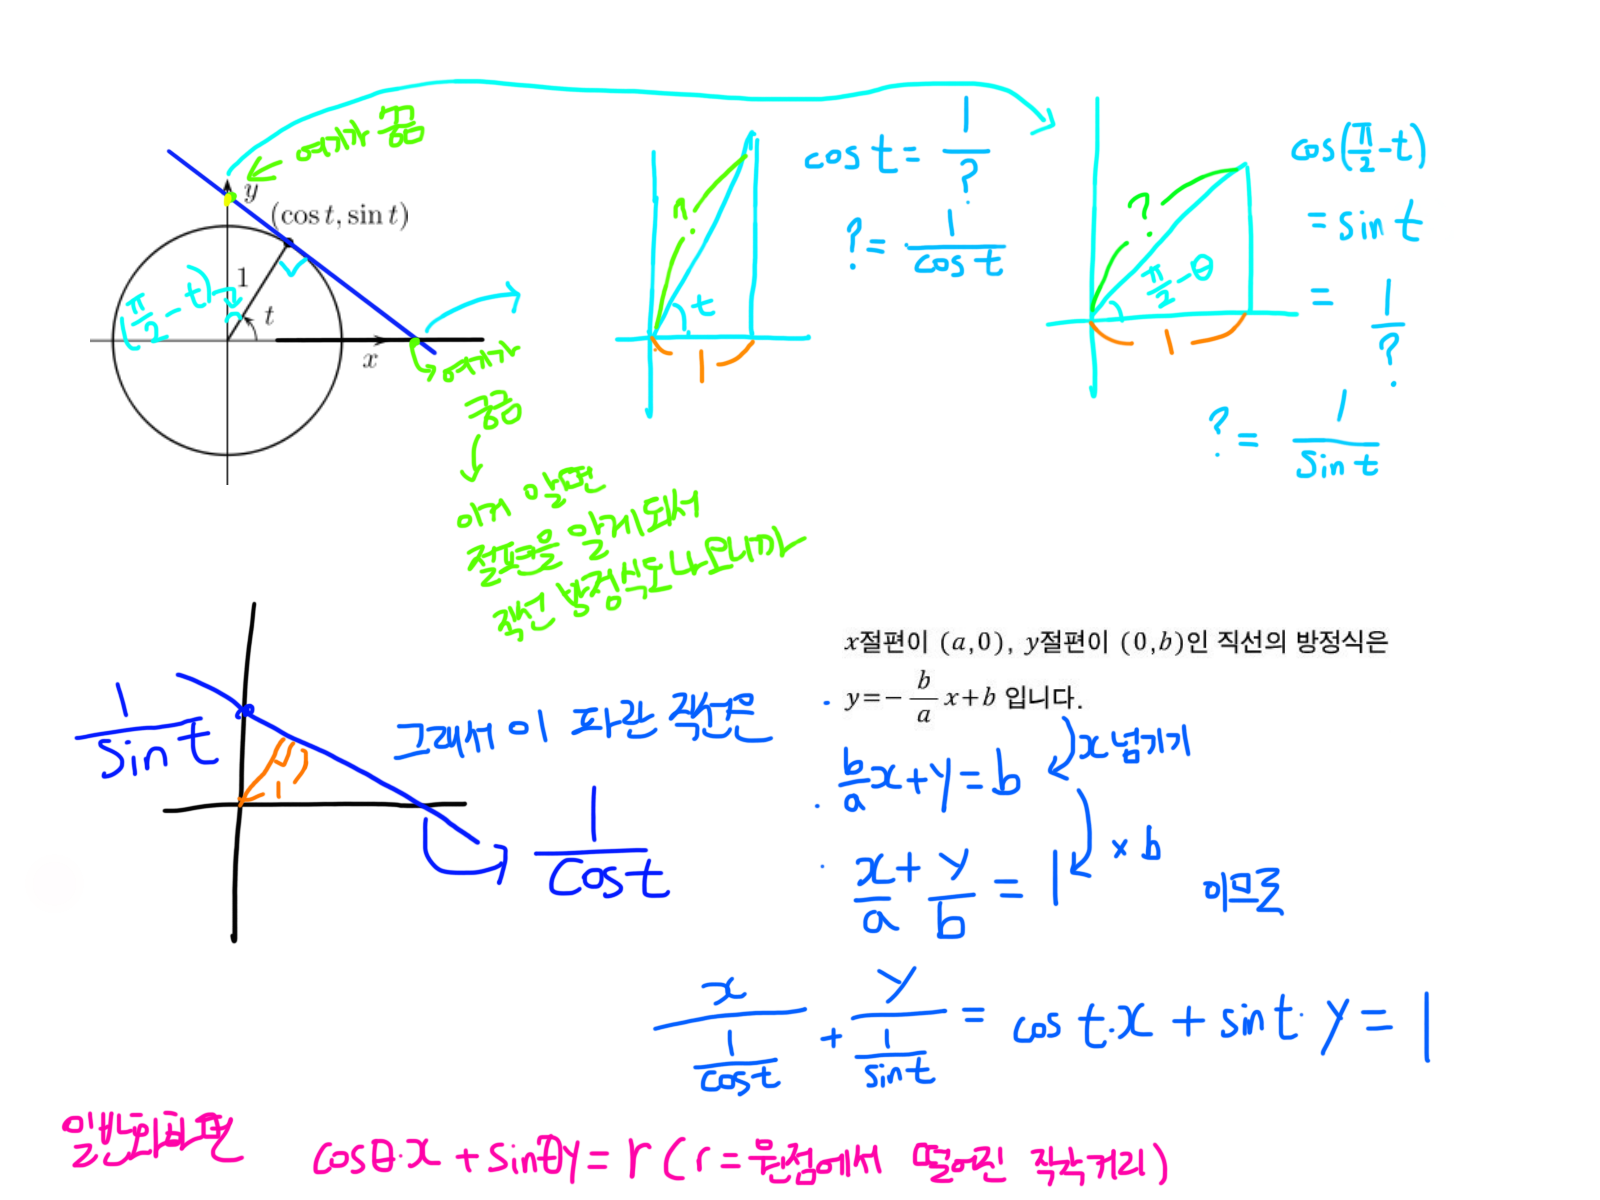 여기가 꿈
y
(cos t, sin t)
1
(π/2 - t)
t
x
여기가
궁금
이거 알면
절편을 알게되서
직선 방정식도 나오니까
?
t
1
cos t = 1/?
? = 1/cos t
?
π/2 - θ
1
cos(π/2 - t)
= sin t
= 1/?
? = 1/sin t
1/sin t
1
1/cos t
그래서 이 파란 직선은
x절편이 (a,0), y절편이 (0,b)인 직선의 방정식은
y = - b/a x + b 입니다.
x 넘기기
b/a x + y = b
× b
x/a + y/b = 1
이므로
x/(1/cos t) + y/(1/sin t) = cos t·x + sin t·y = 1
일반화하면
cosθ·x + sinθy = r (r = 원점에서 떨어진 직각거리)